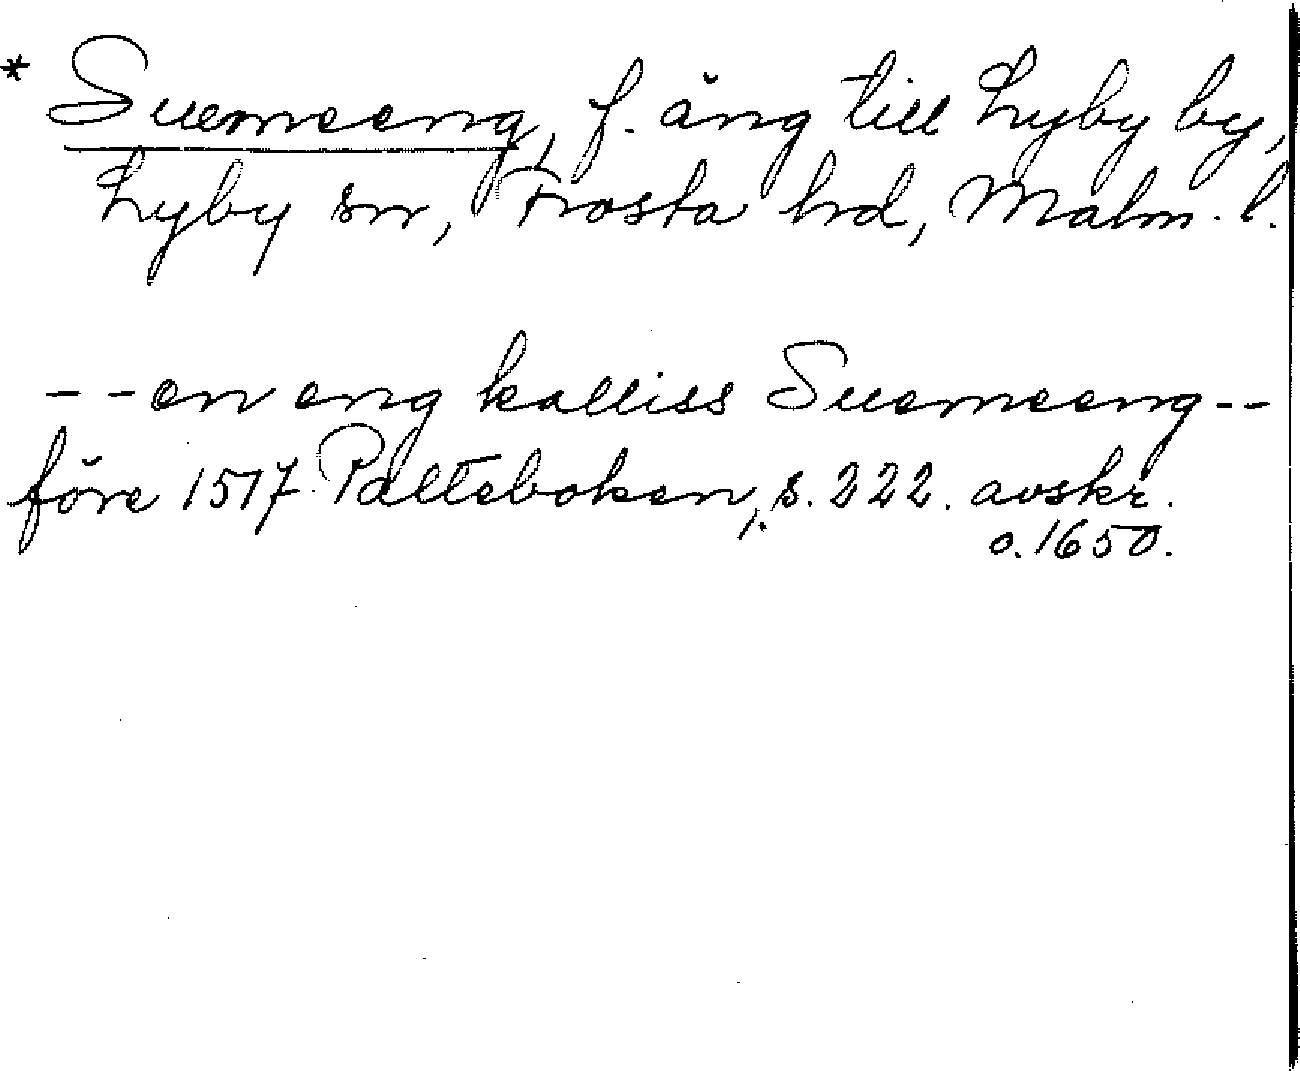 * Suemeeng, f. äng till Lyby by,
Lyby sn, Frosta hd, Malm. l.
-- en eng kalliss Suemeeng --
före 1517. Palteboken, s. 222. avskr.
o. 1650.